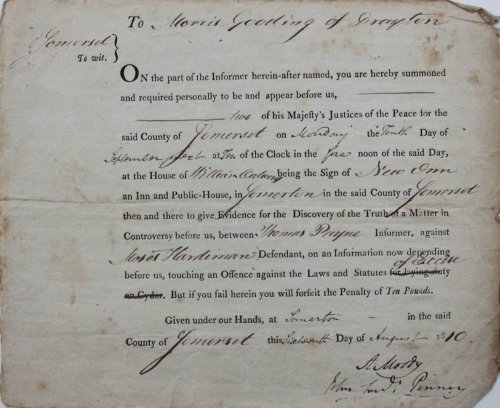 To Morris Gooding of Drayton
Somerset
To wit.
ON the part of the Informer herein-after named, you are hereby summoned
and required personally to be and appear before us,
two of his Majesty's Justices of the Peace for the
said County of Somerset on Monday the Tenth Day of
September next at Ten of the Clock in the fore noon of the said Day,
at the House of William being the Sign of New Inn
an Inn and Public-House, in Somerton in the said County of Somerset
then and there to give Evidence for the Discovery of the Truth of a Matter in
Controversy before us, between Thomas Payne Informer, against
Moses Hardiman Defendant, on an Information now depending
of Excise
before us, touching an Offence against the Laws and Statutes for laying duty
on Cyder. But if you fail herein you will forfeit the Penalty of Ten Pounds.
Given under our Hands, at Somerton in the said
County of Somerset this Day of August 1810.
A Moody
John Pinney